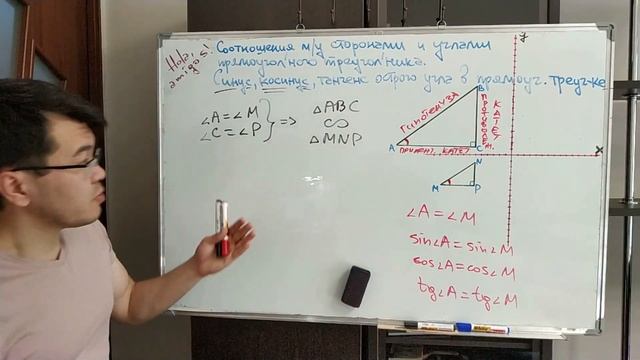 Hola, amigos!
Соотношения м/у сторонами и углами
прямоугольного треугол'ника.
Синус, косинус, тангенс острого угла в прямоуг. треуг-ке
∠A = ∠M
∠C = ∠P
} =>
△ABC
∽
△MNP
ГИПОТЕНУЗА
ПРОТИВОЛЕЖ.
КАТЕТ
ПРИЛЕЖ. КАТЕТ
A
B
C
M
N
P
y
x
∠A = ∠M
sin∠A = sin∠M
cos∠A = cos∠M
tg∠A = tg∠M